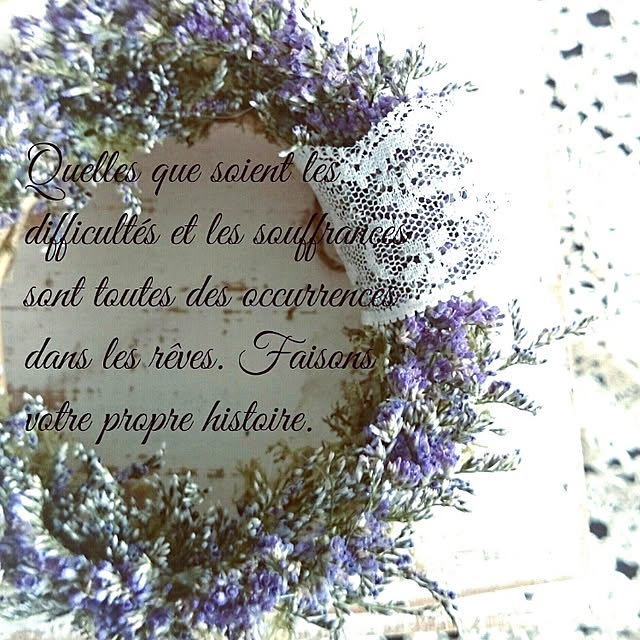 Quelles que soient les
difficultés et les souffrances
sont toutes des occurrences
dans les rêves. Faisons
votre propre histoire.